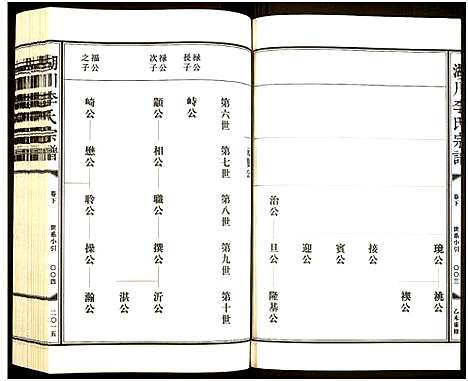 湖川李氏宗譜
卷下
世系小引
〇〇三
乙未重修
瓊公——洮公
接公——禊公
賓公
迎公
治公——旦公——隆基公
第六世 第七世 第八世 第九世 第十世
祿公長子
峙公
祿公次子
顓公——相公——職公——撰公——沂公
湛公
福公之子
崎公——懋公——聆公——操公——瀚公
湖川李氏宗譜
卷下
世系小引
〇〇四
二〇一五